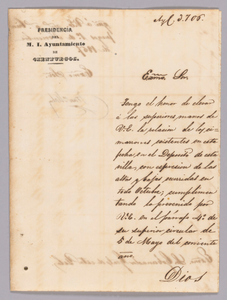 PRESIDENCIA
DEL
M. I. Ayuntamiento
DE
CIENFUEGOS.
Exmo. Sor.
Tengo el honor de elevar
á las superiores manos de
V.E. la relacion de los ci-
marrones existentes en esta
fecha, en el Depósito de esta
villa, con espresion de las
altas y bajas ocurridas en
todo Octubre, cumplimen
tando lo prevenido por
V.E. en el párrafo 4º de
su superior circular de
5 de Mayo del corriente
año.
Dios